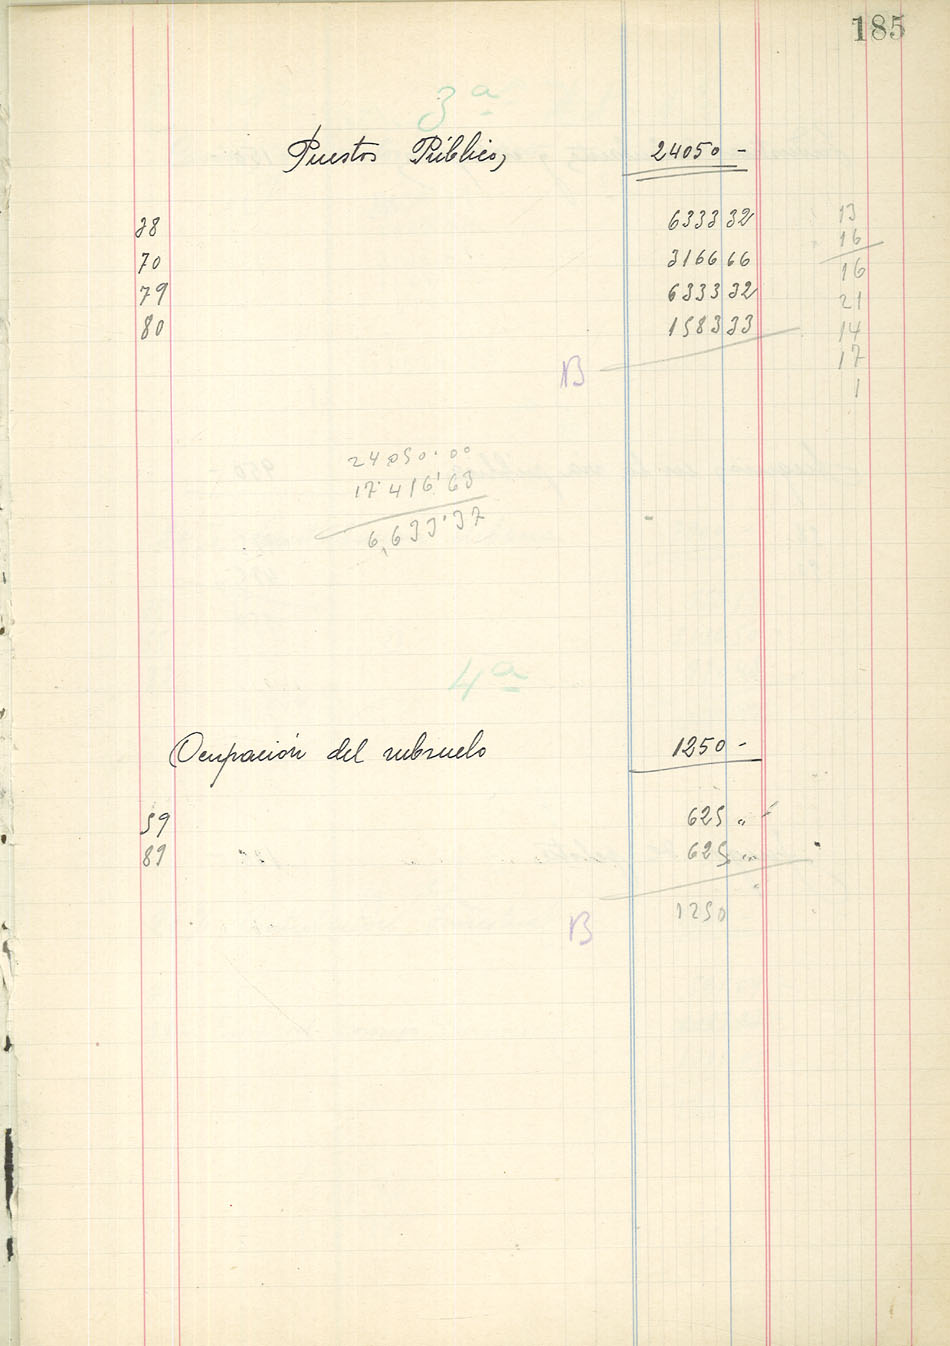 185
3ª
Puestos Públicos 24050 -
38 6333 32
70 3166 66
79 6333 32
80 1583 33
B
13
16
16
21
14
17
1
24050.00
17'416'63
6,633'37
4ª
Ocupación del subsuelo 1250 -
59 625 "
89 625 "
1250
B